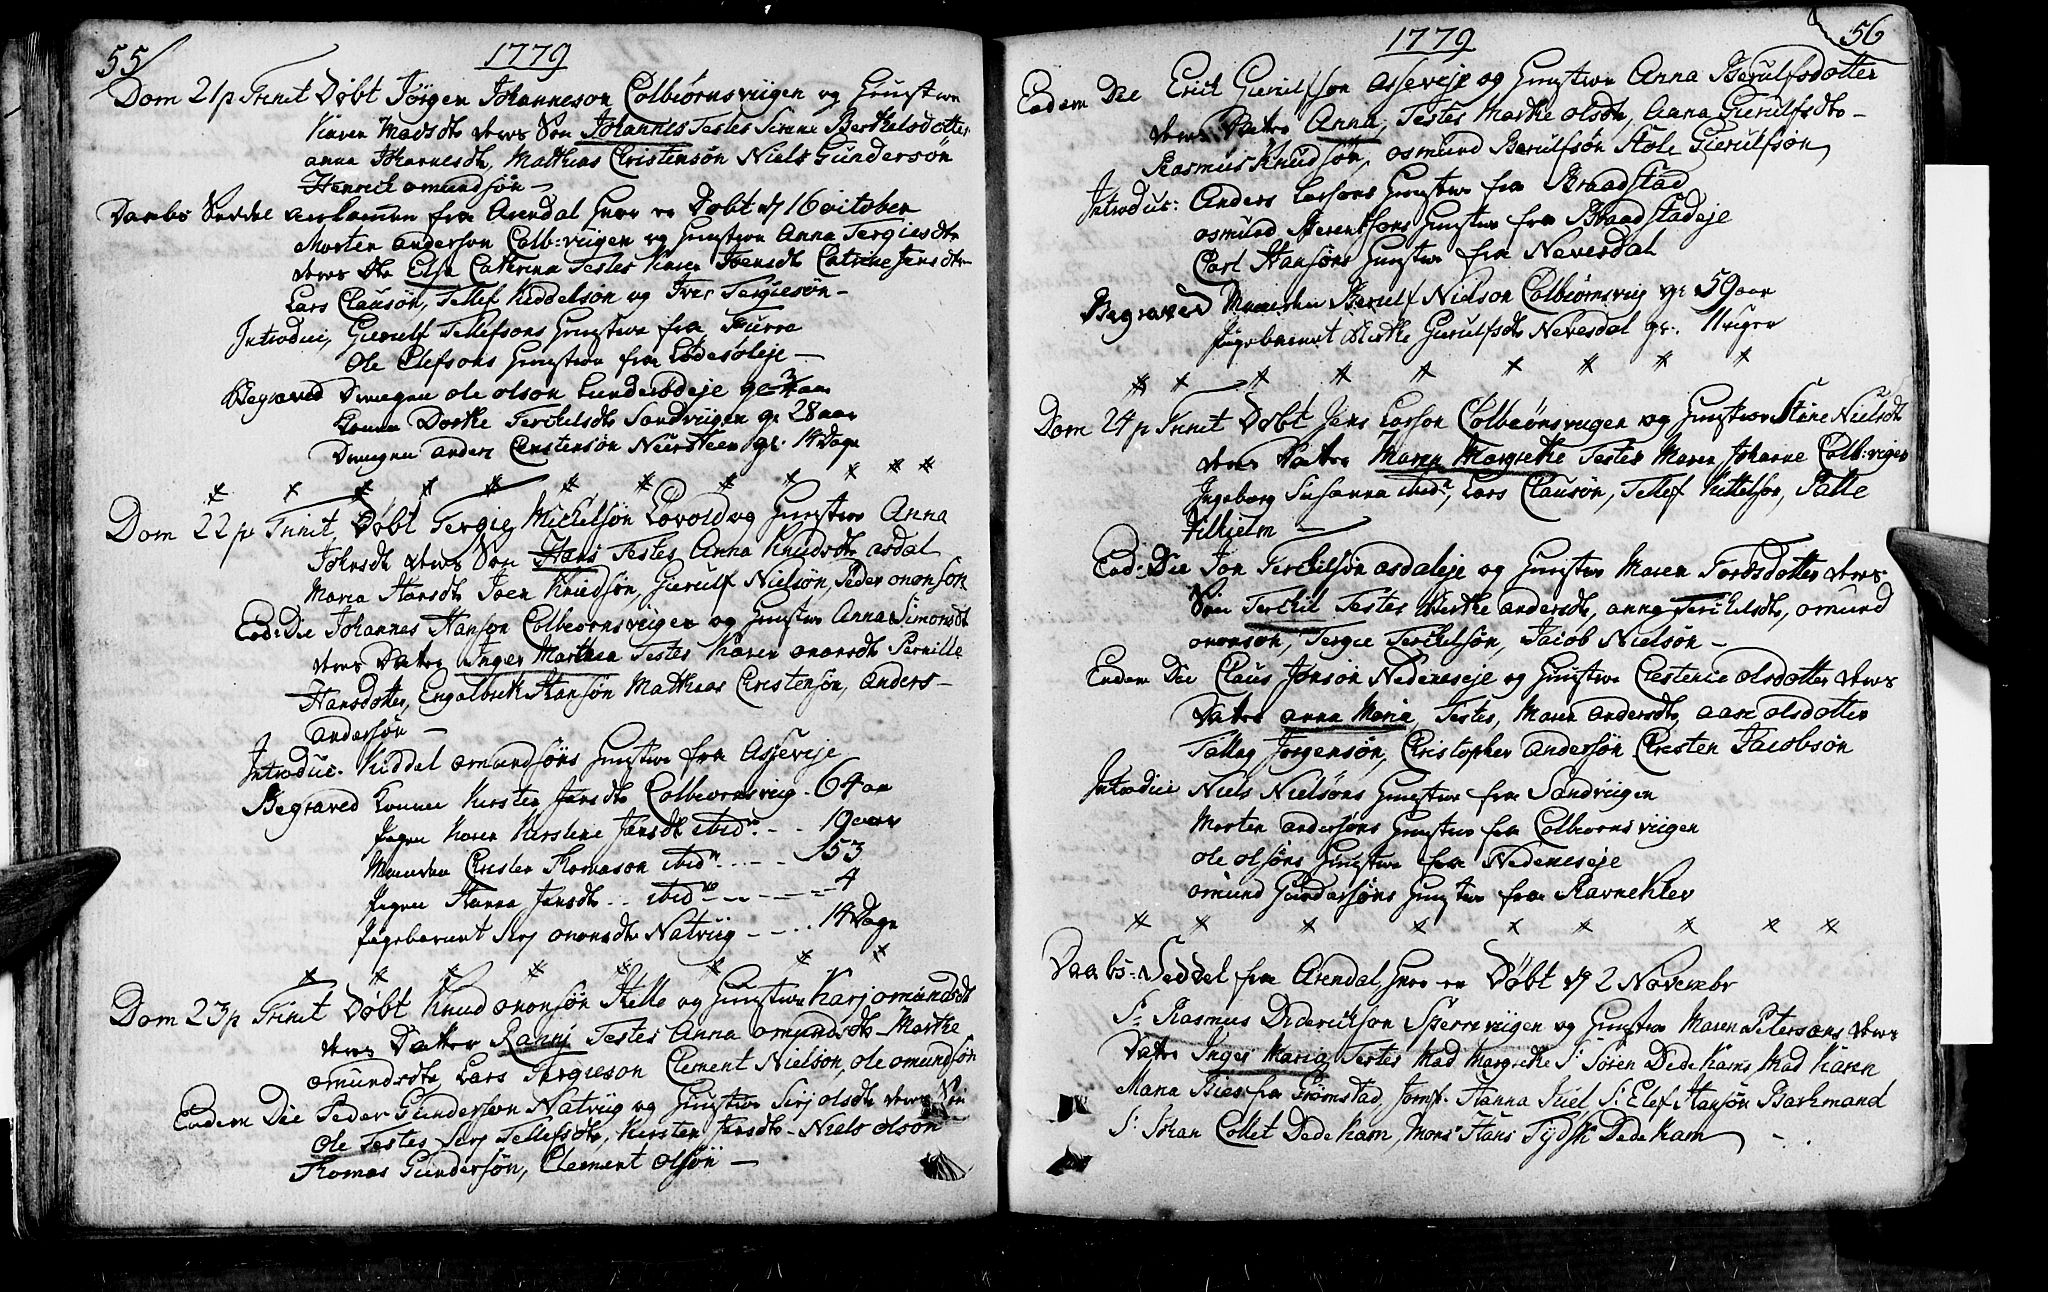 55
1779
Dom 21 p Trinit Døbt Jørgen Johanneson Colbiørnsviigen og Hustrue
Karen Madsdtr deres Søn Johannes Testes Sirene Berthelsdotter
anna Johannesdtr, Mathias Christensøn Niels Gundersøn
Henrick omundsøn —
Daabs Seddel fra Arendal Hvor er Døbt d 16 october
Morten anderson Colb:viigen og Hustrue Anna Tergiesdtr
deres Dtr Else Catherina Testes Karen Joensdtr Catrine Jensdtr
Lars Clausøn, Tellef Kiddelsøn og Iver Tergiesøn —
Introduc, Gierulf Tellefsons Hustrue fra Furre
Ole Olefsons Hustrue fra Lødesøleje —
Begraved Drengen ole olson Lundersdeje gl 3/4 aar
Konen Dorthe Terkelsdtr Sandviigen gl 28 aar
Drengen anders Christensøn Neersteen gl. 14 Dage
Dom 22 p Trinit, Døbt Tergie Michelsøn Løvold og Hustrue Anna
Johnsdtr deres Søn Hans Testes Anna Knudsdtr asdal
Maria Hansdtr Joen Knudsøn, Gierulf Nielsøn, Peder ononsøn
Eod: Die Johannes Hanson Colbiørnsviigen og Hustrue Anna Simonsdtr
deres Datter Inger Marthea Testes Karen ononsdtr Pernille
Hansdotter, Engelbrekt Hansøn Mathias Christensøn, anders
andersøn —
Introduc. Kiddel omundsøns Hustrue fra Asseveje
Begraved Konen Kirsten Jensdtr Colbiornsviig - 64 aar
Pigen Karen Kirstine Jensdtr ibid.. - . 19 aar
Manden Christen Thomason ibid.. - - 53
Pigen Hanna Jensdtr .. ibid.. - - - 4
Pigebarnet Siri ononsdtr Natviig - - . 14 Dage
Dom 23 p Trinit Døbt Knud ononsøn Helle og Hustrue Karj omundsdtr
deres Datter Ranni Testes Anna omundsdtr Marthe
omundsdtr, Lars Tergieson Clement Nielson, ole omundsøn
Eadem Die Peder Gunderson Natviig og Hustrue Siri olsdtr deres Søn
Ole Testes Siri Tellefsdtr, Kirsten Jensdtr - Niels olson
Thomas Gundersøn, Clement olsøn —
56
1779
Eadem Die Erich Gierulfsøn Asseveje og Hustrue Anna Berulfsdotter
deres Datter Anna, Testes Marthe olsdtr, Anna Gierulfsdtr
Rasmus Knudsøn, osmund Berulfsøn Stole Gierulfsøn
Introduc: Anders Larsons Hustrue fra Braastad
osmund Berentsons Hustrue fra Braastadeje
Carl Hansøns Hustrue fra Nevesdal
Begraved Manden Berulf Nielson Colbiørnsviig gl 59 aar
Pigebarnet Birthe Gierulfsdtr Nevesdal gl. 11 uger
Dom 24 p Trinit Døbt Jens Larson Colbiørnsviigen og Hustrue Stine Nielsdtr
deres Datter Maren Margrethe Testes Maren Johanne Colb:viigen
Ingeborg Susanna ibid, Lars Clausøn, Tellef Kittelsøn, Palle
Vilhielm —
Eod: Die Jon Terchilsøn asdaleje og Hustrue Maren Tordsdotter deres
Søn Terchil Testes Birthe andersdtr, anne Terchelsdtr, omund
ononsøn, Tergie Terchelsøn, Jacob Nielsøn —
Eadem Die Claus Jonsøn Nedeneseje og Hustrue Christence olsdotter deres
Datter anna Maria, Testes, Maren andersdtr, aase olsdotter
Tallag Jorgensøn, Christopher andersøn Christen Jacobsøn
Introduc Niels Nielsøns Hustrue fra Sandviigen
Morten andersøns Hustrue fra Colbiornsviigen
ole olsøns Hustrue fra Nedeneseje
omund Gundersøns Hustrue fra Ravneklev
Daabs-Seddel fra Arendal, Hvor er Døbt d 2 Novembr
Sr Rasmus Dideriksøn Sperreviigen og Hustrue Maren Petersens deres
Datter Inger Maria Testes Mad Margrethe Sr Søren Dedekams Mad Karen
Maria Bies fra Grømstad, Jomf. Hanna Juel Sr Elef Hansøn Barkmand
Sr Johan Collet Dedekam, Mons Hans Tydsk Dedekam